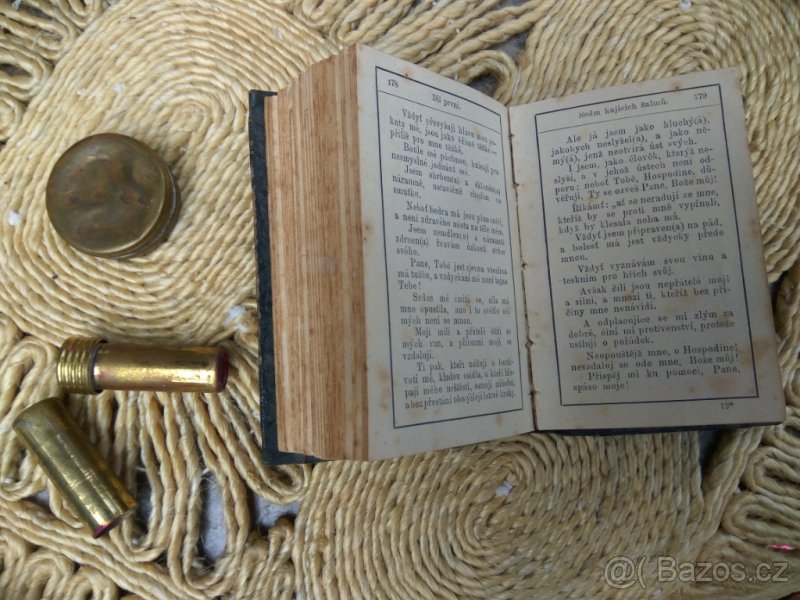 178
Díl první.
Vždyť převyšují hlavu mou
kuty mé, jsou jako břímě těžké —
příliš pro mne těžké.
nesmyslné jednání mé.
Jsem
smutku.
Neboť bedra má jsou plna
a není zdravého místa na těle mém.
Jsem zemdlen(a) a náramně
svého.
Pane, Tobě jest zjevna všechna
má tužba, a vzdychání mé není tajno
Tobě!
Srdce mé zmítá se, síla má
mne opustila, ano i to světlo očí
mých není se mnou.
Moji milí a přátelé štítí se
mých ran, a příbuzní moji se
vzdalují.
Ti pak, kteří usilují o bezži-
votí mé, kladou osidla, a kteří hle-
dají mého neštěstí, osnují záhubu,
a bez přestání obmýšlejí lstivé kroky.
Sedm kajících žalmů.
179
Ale já jsem jako hluchý(á),
jakobych neslyšel(a), a jako ně-
mý(á), jenž neotvírá úst svých.
I jsem, jako člověk, kterýž ne-
slyší, a v jehož ústech není od-
poru; neboť Tobě, Hospodine, dů-
věřuji, Ty se ozveš Pane, Bože můj!
Říkámť: „ať se neradují ze mne,
kteříž by se proti mně vypínali,
když by klesala noha má.
Vždyť jsem připraven(a) na pád,
a bolesť má jest vždycky přede
mnou.
Vždyť vyznávám svou vinu a
teskním pro hřích svůj.
Avšak čilí jsou nepřátelé moji
a silní, a mnozí ti, kteříž bez pří-
činy mne nenávidí.
A odplacujíce se mi zlým za
dobré, činí mi protivenství, protože
usiluji o pořádek.
Neopouštějž mne, o Hospodine!
nevzdaluj se ode mne, Bože můj!
Přispěj mi ku pomoci, Pane,
spáso moje!
12*
@( Bazos.cz